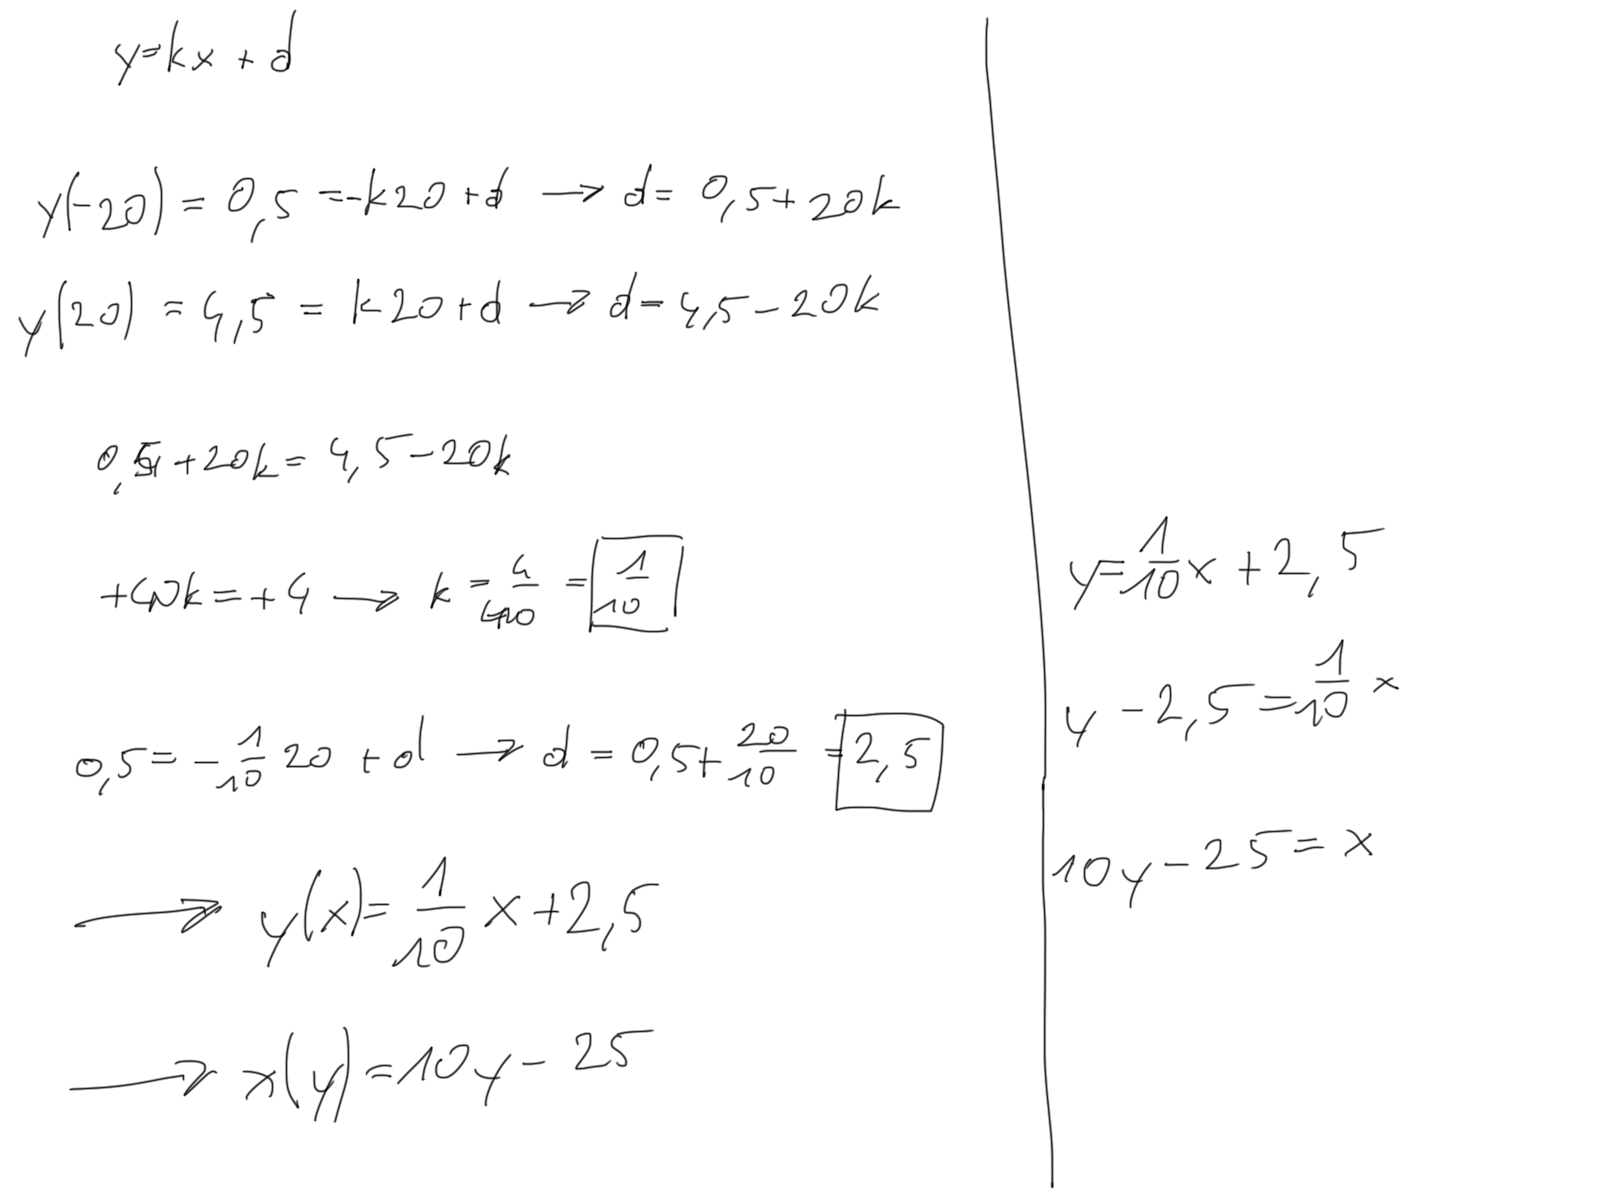 y=kx + d
y(-20) = 0,5 =-k20 +d → d= 0,5+20k
y(20) = 4,5 = k20+d → d=4,5-20k
0,5+20k= 4,5-20k
+40k=+4 → k = 4/40 = 1/10
0,5= - 1/10 20 + d → d = 0,5+ 20/10 = 2,5
→ y(x)= 1/10 x+2,5
→ x(y)=10y-25
y= 1/10 x +2,5
y -2,5= 1/10 x
10y-25= x